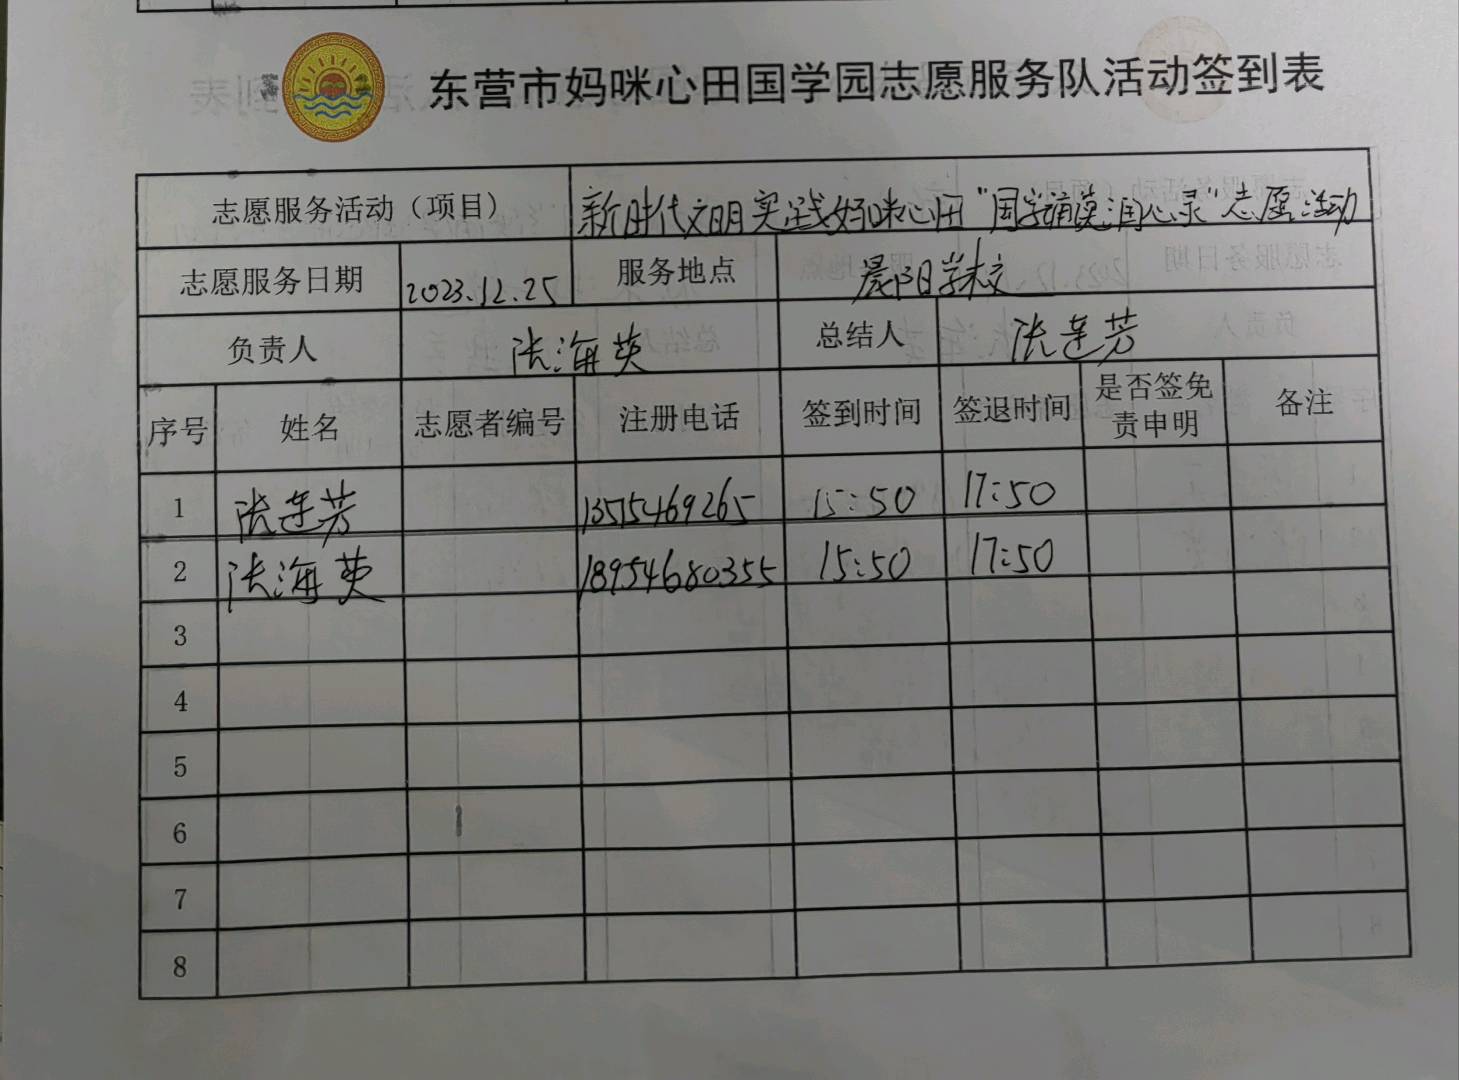 东营市妈咪心田国学园志愿服务队活动签到表
志愿服务活动（项目） 新时代文明实践妈咪心田“国学诵读润心灵”志愿活动
志愿服务日期 2023.12.25 服务地点 晨阳学校
负责人 张海英 总结人 张莲芳
序号 姓名 志愿者编号 注册电话 签到时间 签退时间 是否签免责申明 备注
1 张莲芳 15:50 17:50
2 张海英 18954680355 15:50 17:50
3
4
5
6
7
8